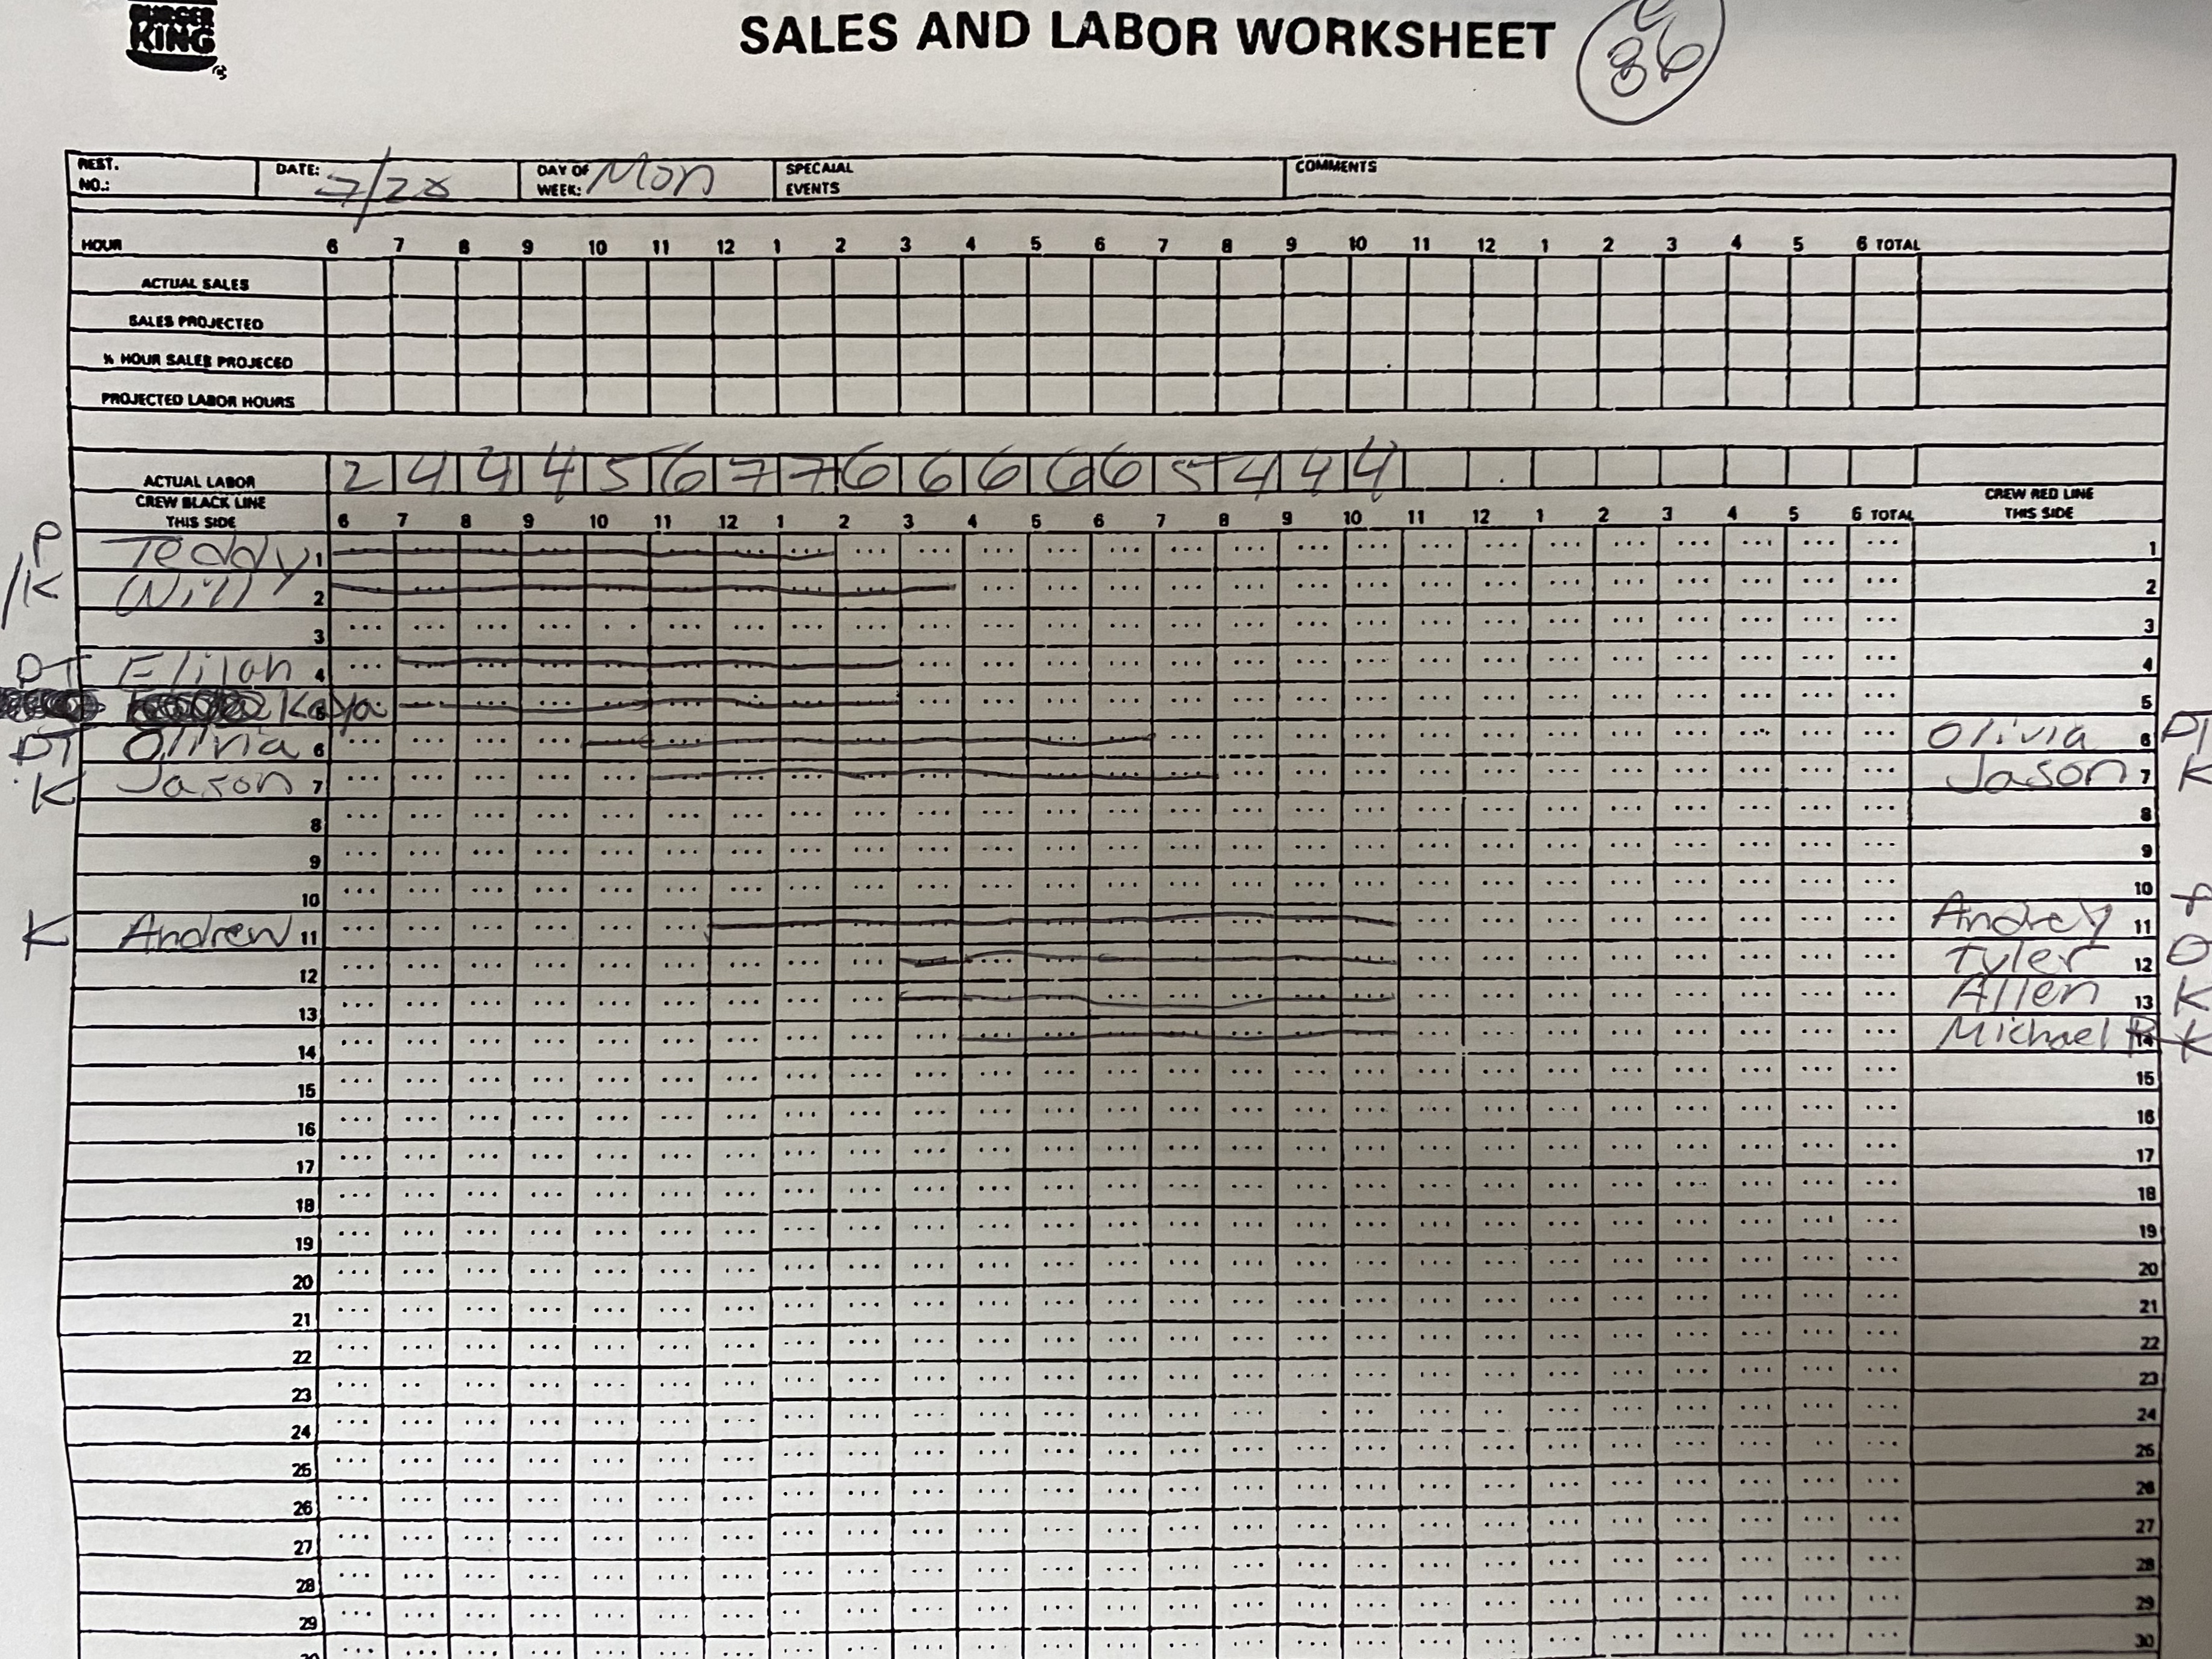 BURGER KING
SALES AND LABOR WORKSHEET 86
REST. NO.: DATE: 7/28 DAY OF WEEK: Mon SPECAIAL EVENTS COMMENTS
HOUR 6 7 8 9 10 11 12 1 2 3 4 5 6 7 8 9 10 11 12 1 2 3 4 5 6 TOTAL
ACTUAL SALES
SALES PROJECTED
% HOUR SALES PROJECED
PROJECTED LABOR HOURS
ACTUAL LABOR 2 4 4 4 5 6 7 7 6 6 6 6 6 5 4 4 4
CREW BLACK LINE THIS SIDE 6 7 8 9 10 11 12 1 2 3 4 5 6 7 8 9 10 11 12 1 2 3 4 5 6 TOTAL CREW RED LINE THIS SIDE
P Teddy 1 1
/K Will 2 2
3 3
DT Elijah 4 4
Kaya 5 5
DT Olivia 6 Olivia 6 DT
K Jason 7 Jason 7 K
8 8
9 9
10 10
K Andrew 11 Andrey 11
12 Tyler 12
13 Allen 13 K
14 Michael R 14 K
15 15
16 16
17 17
18 18
19 19
20 20
21 21
22 22
23 23
24 24
25 25
26 26
27 27
28 28
29 29
30 30